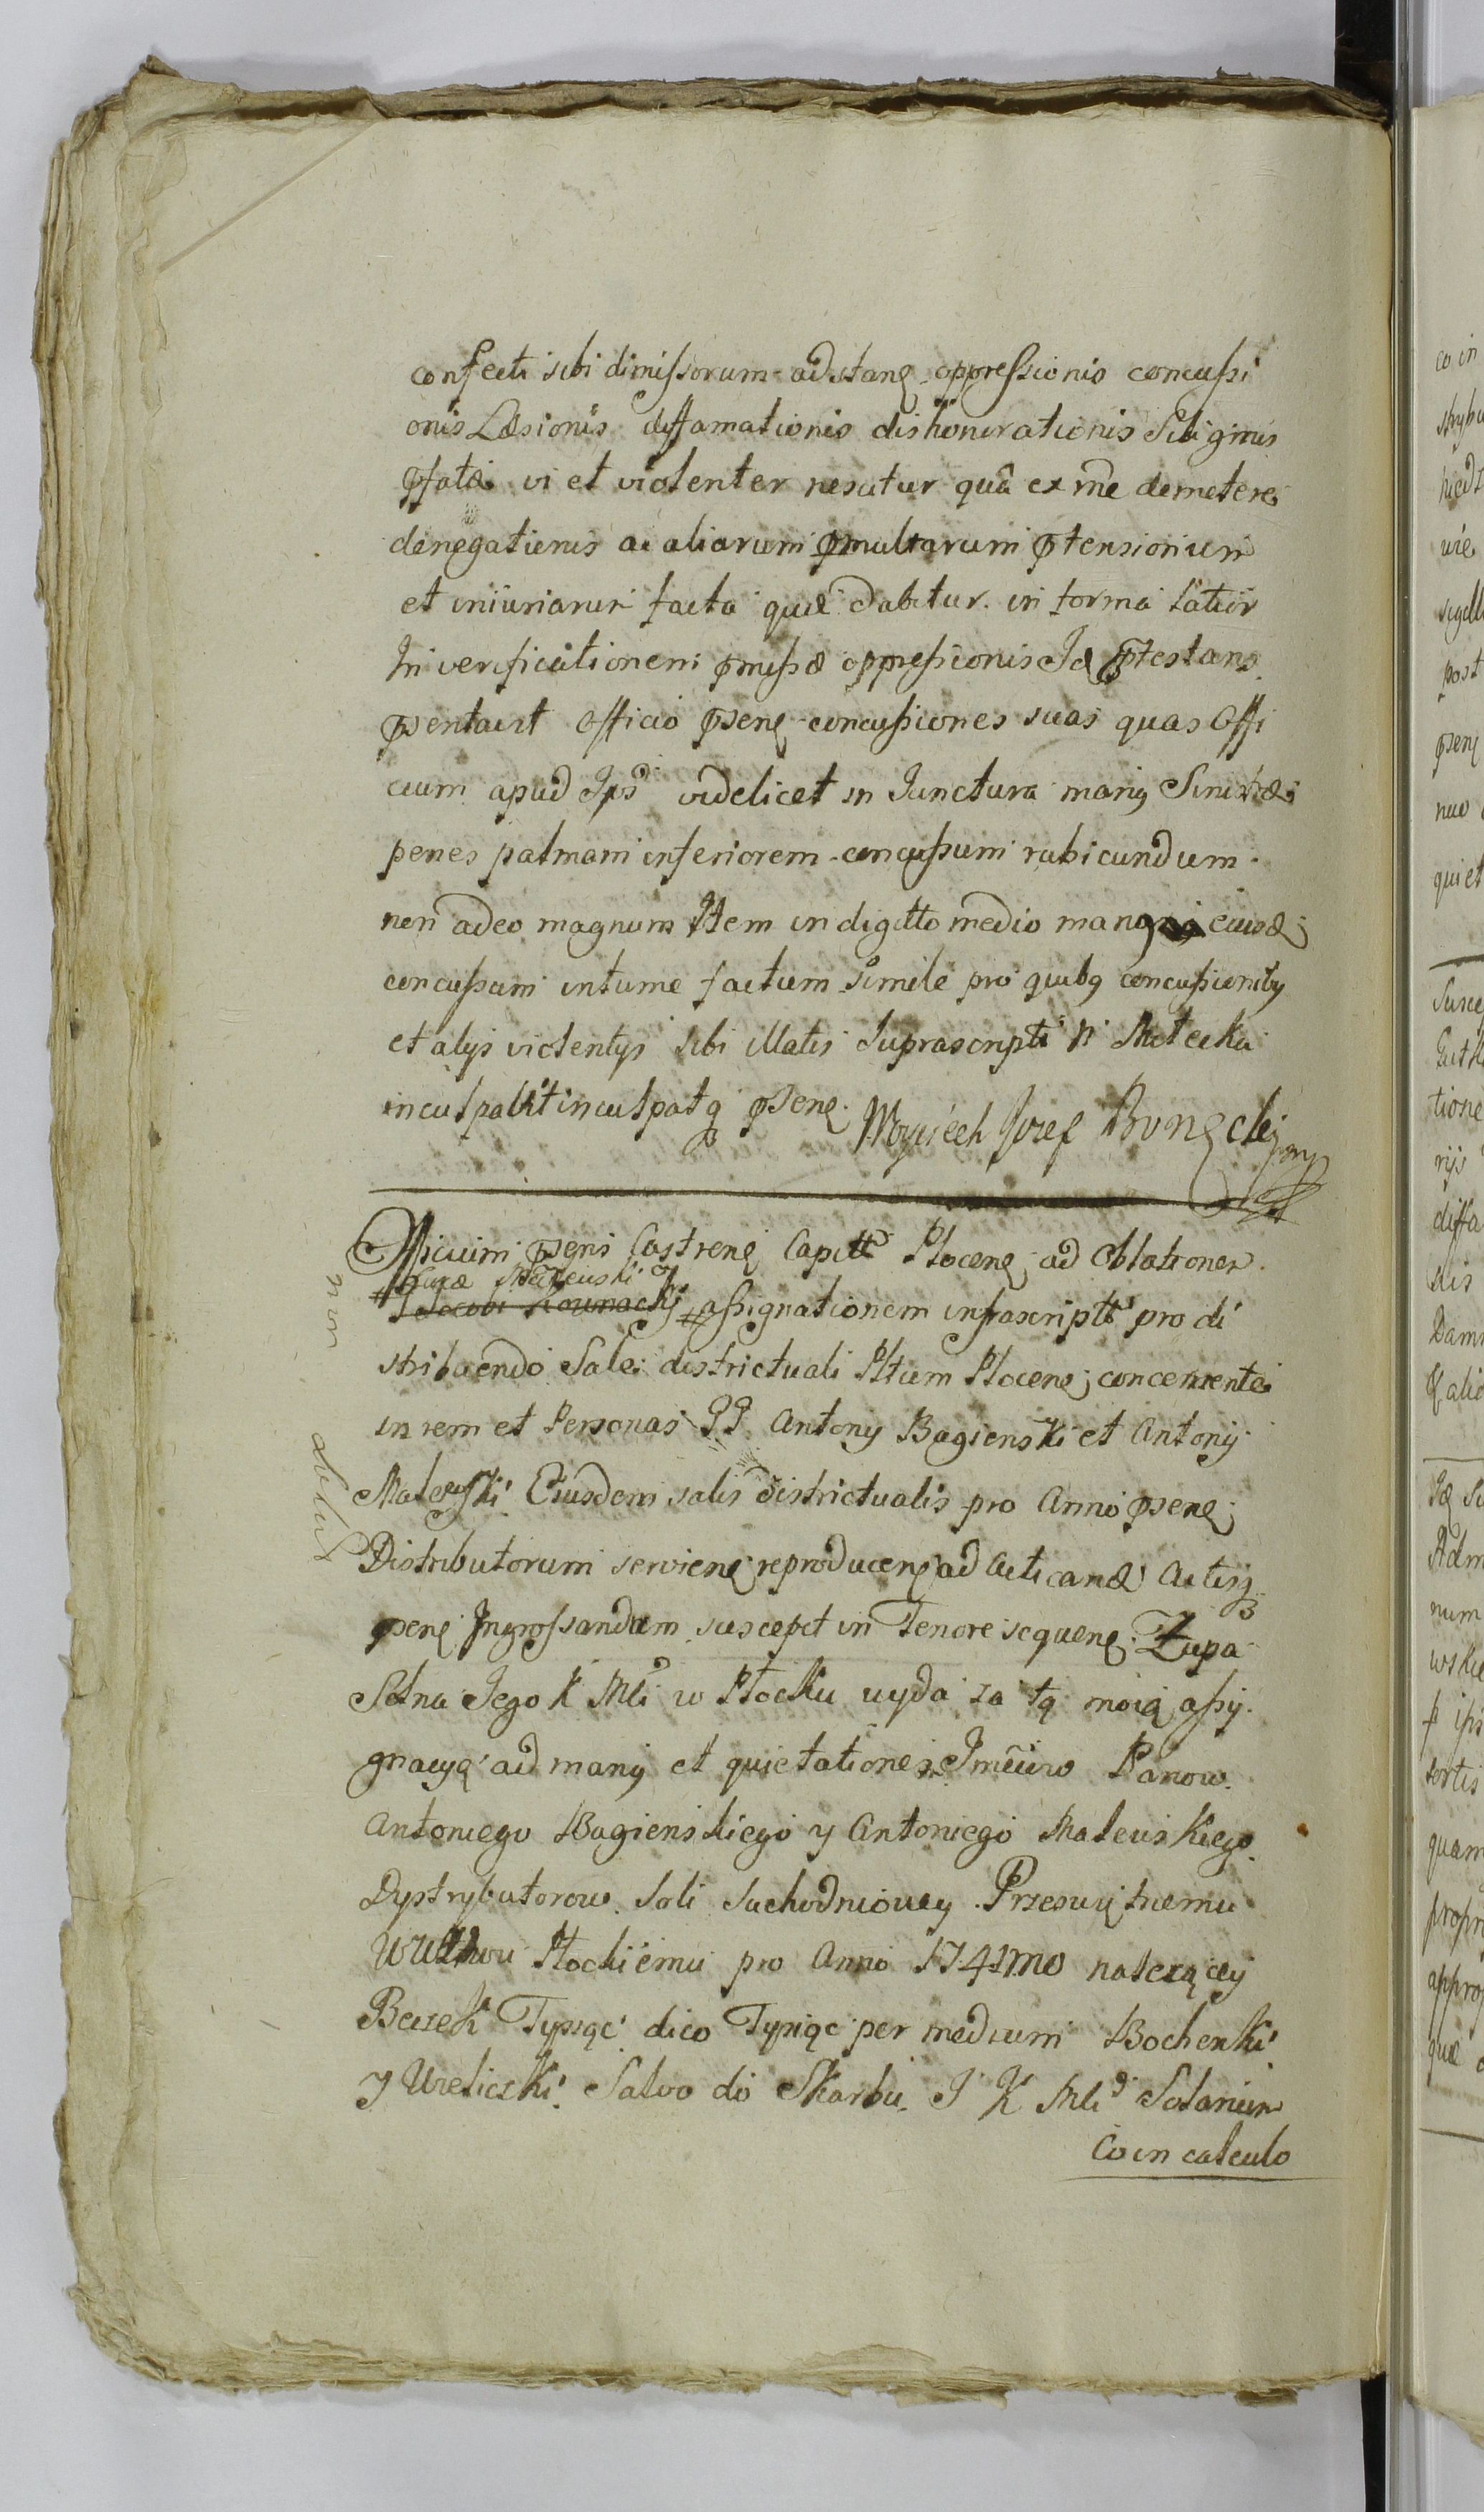 confecti sibi dimissorum adstanę oppressionis concussi
onis Læsionis diffamationis dishonorationis Sibi
vi et violenter nesutur quâ ex rñe demetere
denegationis ac aliarum multarum tensionum
et iniuriarum facta quæ dabitur in forma latior
In verificationem missæ oppressionis Id testans
sentavit Officio senę concussiones suas quas Offi
cium apud Ips videlicet in Junctura manus Sinistræ
penes palmam inferiorem concussum rubicundum
non adeo magnum Item in digitto medio manus eiusd
concussum intume factum simile pro quibq concussionibq
et alijs violentijs sibi illatis Suprascripti N Malecka
inculpavit inculpatq senę. Woyciech Jozef Bronęcki mp
Officium sens Castrenę Capitt Plocenę ad Oblationem
# Lucæ Maleuski #
Jacobi # assignationem infrascriptt pro di
stribuendo Sale districtuali Pltum Plocenę concernente
in rem et Personas PP Antony Bagienski et Antonij
Maleuski Eiusdem salis districtualis pro Anno senę
Distributorum servienę reproducenę ad Acticand Actisq
senę Ingrossandum suscepit in Tenore sequenę Zupa
Solna Jego K Mći w Płocku wyda za tą moią assy
gnacyą ad manq et quietationes Jmciuw Panow
Antoniego Bagienskiego y Antoniego Maleuskiego
Dystrybutorow Soli Suchodniowey Przeswiętnemu
Wdztwu Płockiemu pro Anno 1741mo nalezącey
Beczek Tysiąc dico Tysiąc per medium Bochenski
y Wieliczki Salvo do Skarbu J K Mći Solarium
Co in calculo